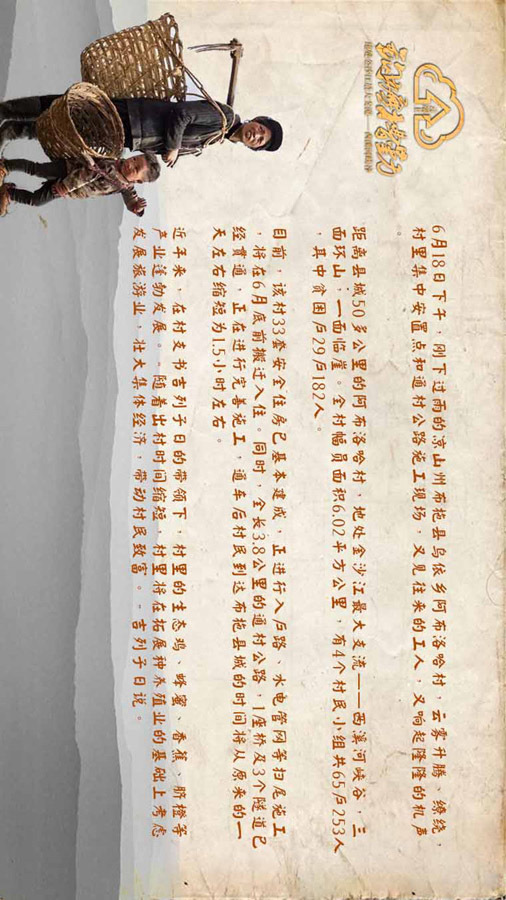 6月18日下午，刚下过雨的凉山州布拖县乌依乡阿布洛哈村，云雾升腾、缭绕，
村里集中安置点和通村公路施工现场，又见往来的工人，又响起隆隆的机声
。
距离县城50多公里的阿布洛哈村，地处金沙江最大支流——西溪河峡谷，三
面环山；一面临崖。全村幅员面积6.02平方公里，有4个村民小组共65户253人
，其中贫困户29户182人。
目前，该村33套安全住房已基本建成，正进行入户路、水电管网等扫尾施工
，将在6月底前搬迁入住。同时，全长3.8公里的通村公路，1座桥及3个隧道已
经贯通，正在进行完善施工，通车后村民到达布拖县城的时间将从原来的一
天左右缩短为1.5小时左右。
近年来，在村支书吉列子日的带领下，村里的生态鸡、蜂蜜、香蕉、脐橙等
产业蓬勃发展。“随着出村时间缩短，村里将在拓展种养殖业的基础上考虑
发展旅游业，壮大集体经济，带动村民致富。”吉列子日说。